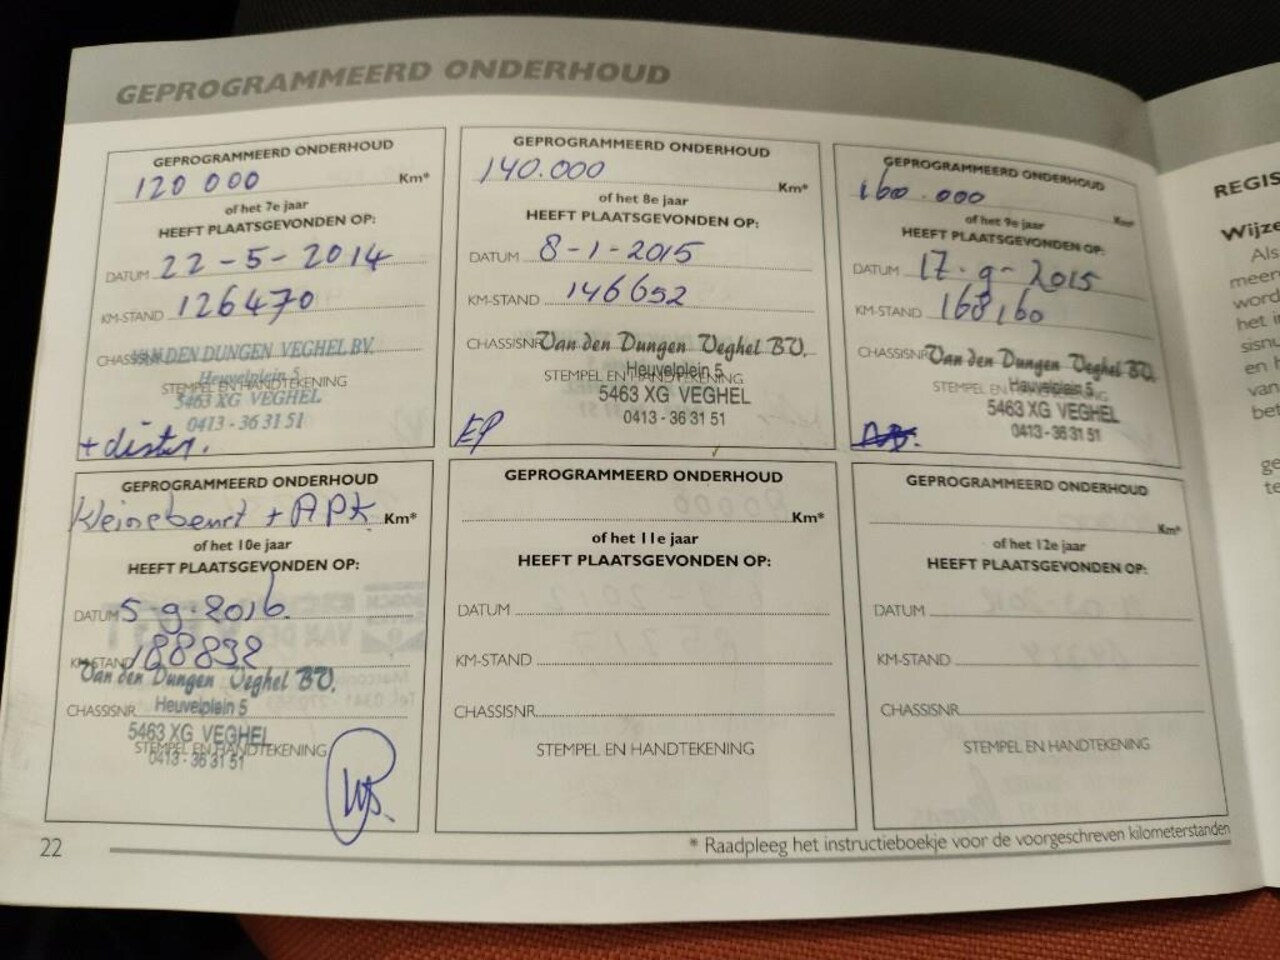 GEPROGRAMMEERD ONDERHOUD
GEPROGRAMMEERD ONDERHOUD
120 000 Km*
of het 7e jaar
HEEFT PLAATSGEVONDEN OP:
DATUM 22-5-2014
KM-STAND 126470
VAN DEN DUNGEN VEGHEL BV.
Heuvelplein 5
STEMPEL EN HANDTEKENING
5463 XG VEGHEL
0413 - 36 31 51
+ distr.
GEPROGRAMMEERD ONDERHOUD
140.000 Km*
of het 8e jaar
HEEFT PLAATSGEVONDEN OP:
DATUM 8-1-2015
KM-STAND 146652
CHASSISNR Van den Dungen Veghel BV.
Heuvelplein 5
STEMPEL EN HANDTEKENING
5463 XG VEGHEL
0413 - 36 31 51
EP
GEPROGRAMMEERD ONDERHOUD
160.000 Km*
of het 9e jaar
HEEFT PLAATSGEVONDEN OP:
DATUM 17-9-2015
KM-STAND 168160
CHASSISNR Van den Dungen Veghel BV.
Heuvelplein 5
STEMPEL EN HANDTEKENING
5463 XG VEGHEL
0413 - 36 31 51
GEPROGRAMMEERD ONDERHOUD
Kleinebeurt + APK Km*
of het 10e jaar
HEEFT PLAATSGEVONDEN OP:
DATUM 5-9-2016
KM-STAND 188832
Van den Dungen Veghel BV.
CHASSISNR Heuvelplein 5
5463 XG VEGHEL
STEMPEL EN HANDTEKENING
0413 - 36 31 51
GEPROGRAMMEERD ONDERHOUD
Km*
of het 11e jaar
HEEFT PLAATSGEVONDEN OP:
DATUM
KM-STAND
CHASSISNR.
STEMPEL EN HANDTEKENING
GEPROGRAMMEERD ONDERHOUD
Km*
of het 12e jaar
HEEFT PLAATSGEVONDEN OP:
DATUM
KM-STAND
CHASSISNR.
STEMPEL EN HANDTEKENING
22
* Raadpleeg het instructieboekje voor de voorgeschreven kilometerstanden
REGIS
Wijze
Als
meer
word
het i
sisnu
en h
van
bet
ge
te